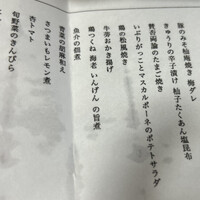 笹のみそ柚庵焼き 梅ダレ
きゅうりの辛子漬け 柚子たくあん 塩昆布
賛否両論のたまご焼き
いぶりがっことマスカルポーネのポテトサラダ
鶏の松風焼き
牛蒡おかき揚げ
鶏つくね 海老 いんげん の旨煮
魚介の佃煮
青菜の胡麻和え
さつまいもレモン煮
杏トマト
旬野菜のきんぴら